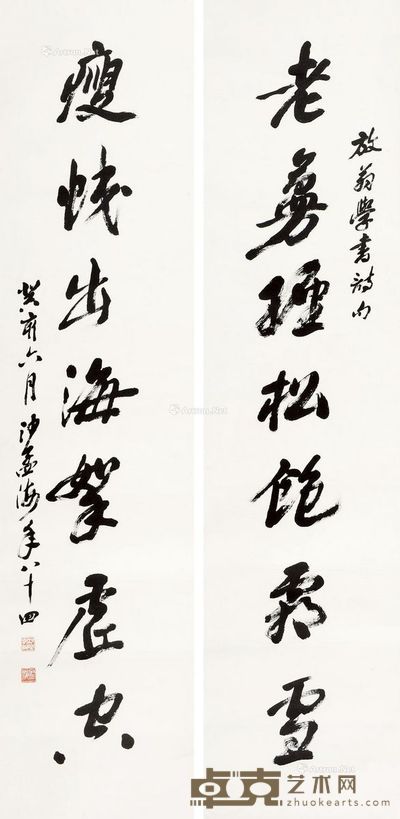 放翁學書詩句
老蔓纏松飽霜雪
瘦蛟出海拏虛空
癸亥六月沙孟海年八十四
卓克艺术网
zhuokearts.com
Artron.Net